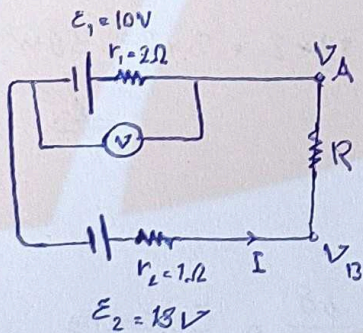 ℰ₁ = 10V
r₁ = 2Ω
V
V_A
R
r₂ = 1Ω
I
V_B
ℰ₂ = 18V